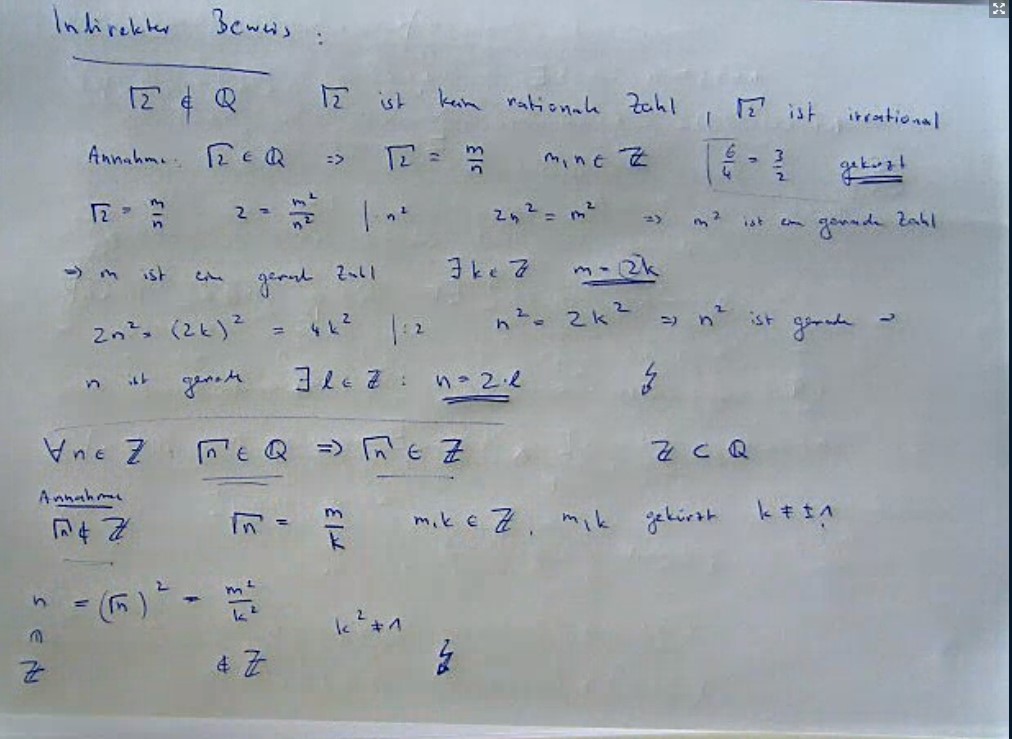 Indirekter Beweis :
√2 ∉ ℚ √2 ist kein rationale Zahl , √2 ist irrational
Annahme: √2 ∈ ℚ => √2 = m/n m,n ∈ ℤ | 6/4 = 3/2 gekürzt
√2 = m/n 2 = m²/n² | · n² 2n² = m² => m² ist ein gerade Zahl
=> m ist ein gerade Zahl ∃ k ∈ ℤ m = 2k
2n² = (2k)² = 4k² | :2 n² = 2k² => n² ist gerade =>
n ist gerade ∃ l ∈ ℤ : n = 2·l ↯
∀n ∈ ℤ : √n ∈ ℚ => √n ∈ ℤ ℤ ⊂ ℚ
Annahme
√n ∉ ℤ √n = m/k m,k ∈ ℤ, m,k gekürzt k ≠ ±1
n = (√n)² = m²/k² k² ≠ 1
∩
ℤ ∉ ℤ ↯